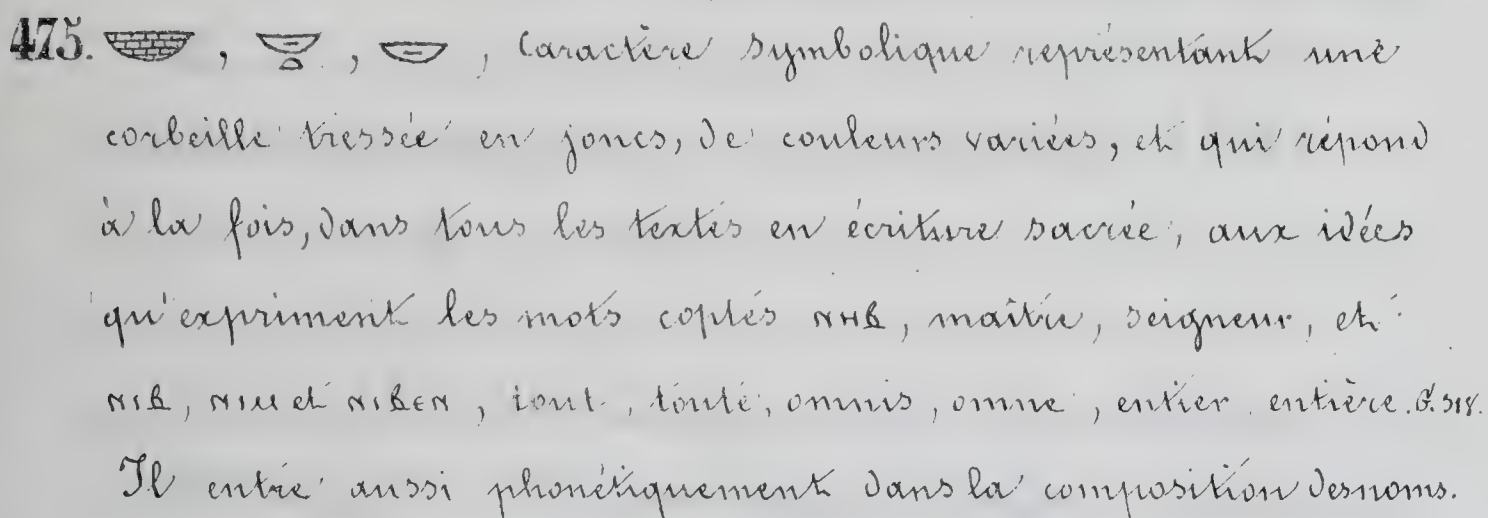 475. 𓎟, 𓎟𓏏, 𓎟, Caractère symbolique représentant une
corbeille tressée en joncs, de couleurs variées, et qui répond
à la fois, dans tous les textes en écriture sacrée, aux idées
qu'expriment les mots coptes ⲛⲏⲃ, maître, seigneur, et
ⲛⲓⲃ, ⲛⲓⲙ et ⲛⲓⲃⲉⲛ, tout, toute, omnis, omne, entier entière. G. 318.
Il entre aussi phonétiquement dans la composition des noms.